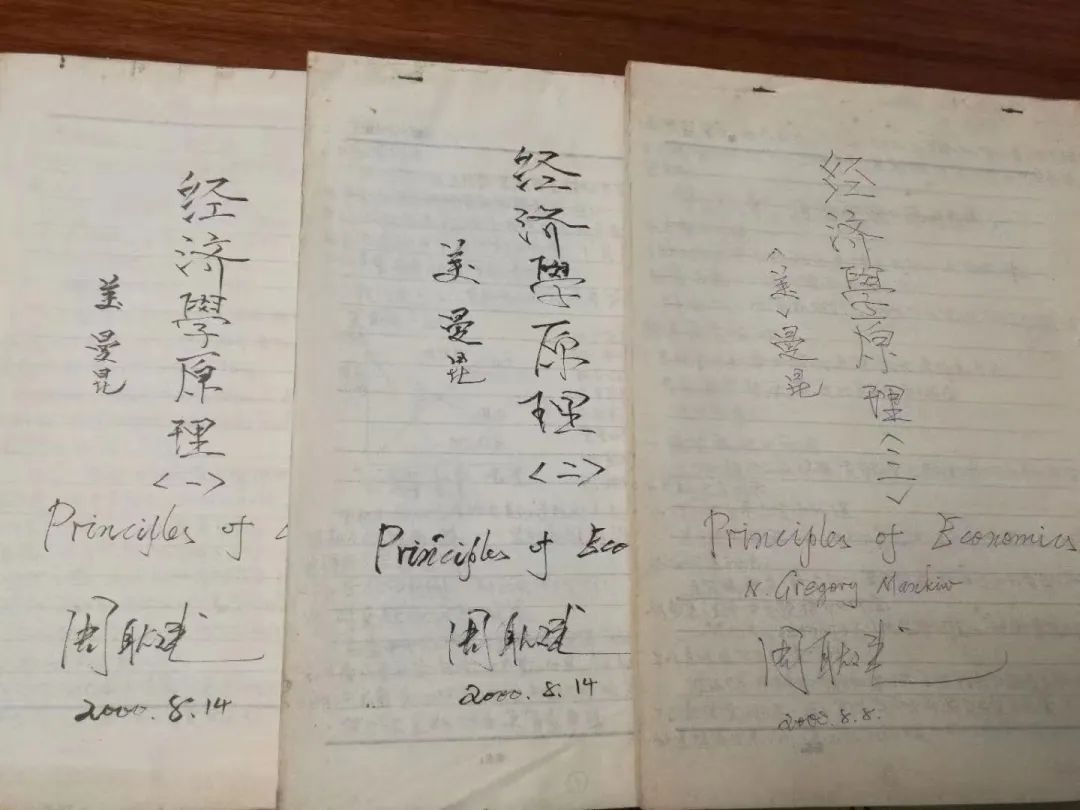 经济學原理
<一>
美 曼昆
Principles of
2000.8.14
经济學原理
<二>
美 曼昆
Principles of Eco
2000.8.14
经济學原理<三>
<美>曼昆
Principles of Economics
N. Gregory Mankiw
2000.8.8.